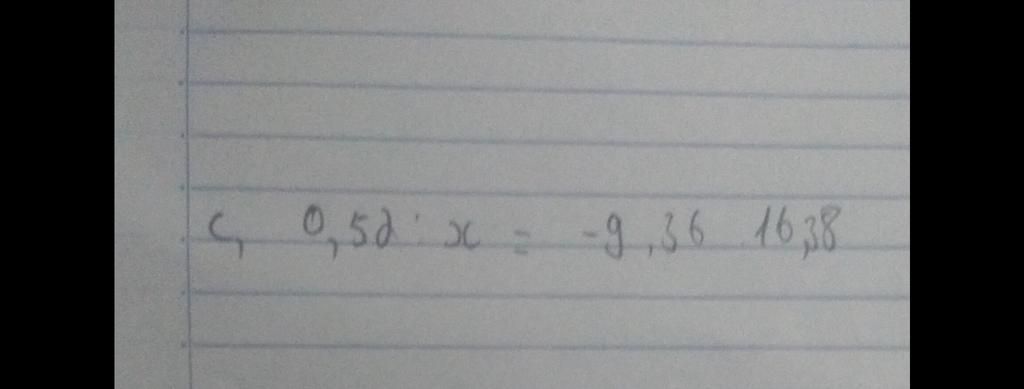 c, 0,52 : x = -9,36 16,38